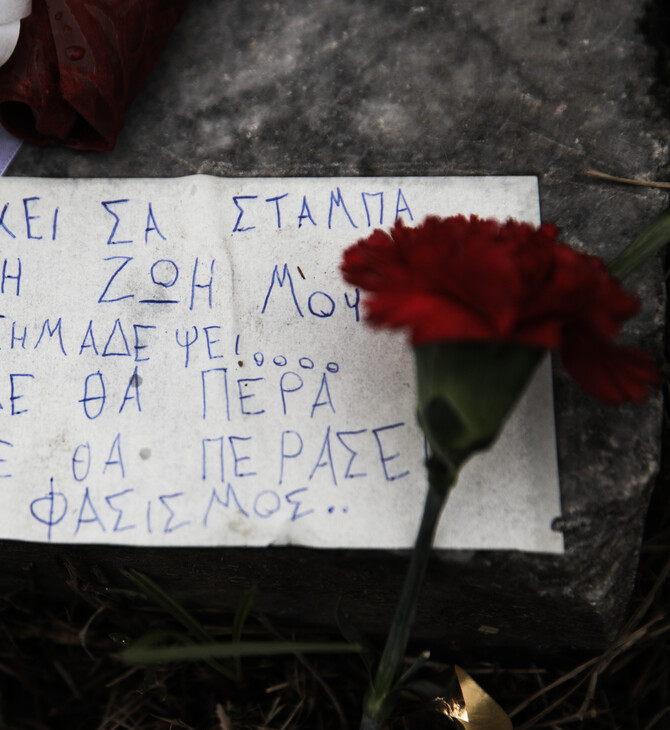 ΧΕΙ ΣΑ ΣΤΑΜΠΑ
Η ΖΩΗ ΜΟΥ
ΣΗΜΑΔΕΨΕΙ....
ΔΕ ΘΑ ΠΕΡΑ
Ε ΘΑ ΠΕΡΑΣΕΙ
ΦΑΣΙΣΜΟΣ..